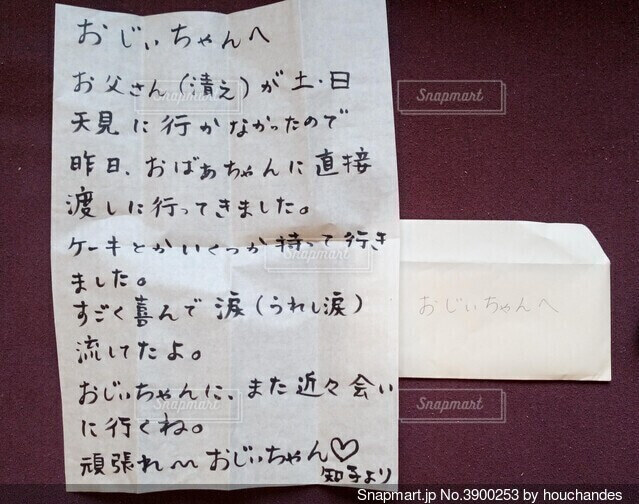 おじぃちゃんへ
お父さん(清え)が土・日
天見に行かなかったので
昨日、おばぁちゃんに直接
渡しに行ってきました。
ケーキとかいくつか持って行き
ました。
すごく喜んで涙(うれし涙)
流してたよ。
おじぃちゃんに、また近々会い
に行くね。
頑張れ〜〜おじぃちゃん♡
知子より
おじぃちゃんへ
Snapmart
Snapmart
Snapmart
Snapmart
Snapmart
Snapmart
Snapmart.jp No.3900253 by houchandes